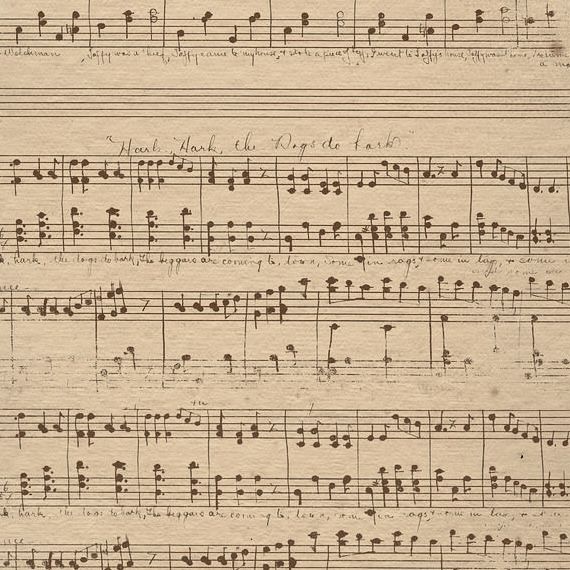 Welchman Taffy was a thief, Taffy came to my house, & stole a piece of beef, I went to Taffy's house, Taffy wasn't home,
a ma
"Hark, Hark, the Dogs do bark"
k, hark, the dogs do bark, The beggars are coming to town, some in rags, & some in tag, & some
k, hark, the dogs do bark, The beggars are coming to town, some in rags, & some in tag, &